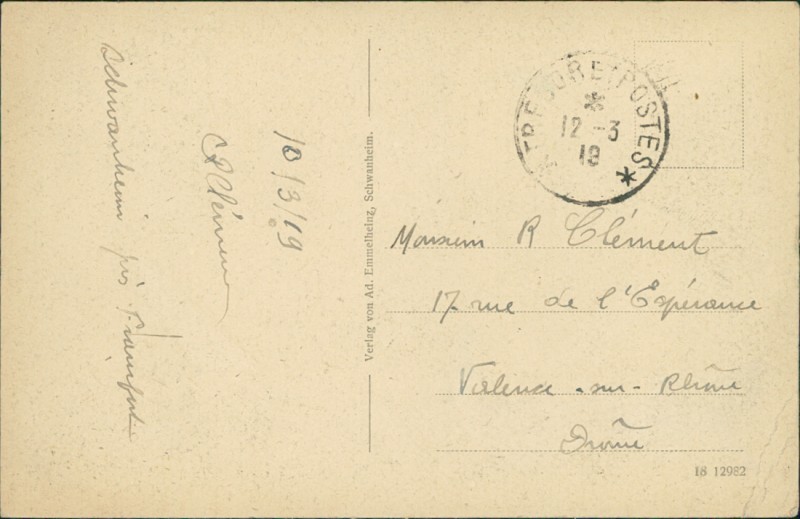 Schwanheim près Francfort
10/3/19
Clément
Verlag von Ad. Emmelheinz, Schwanheim.
TRESOR ET POSTES
12 -3
19
Monsieur R Clément
17 rue de l'Espérance
Valence-sur-Rhône
Drôme
18 12982